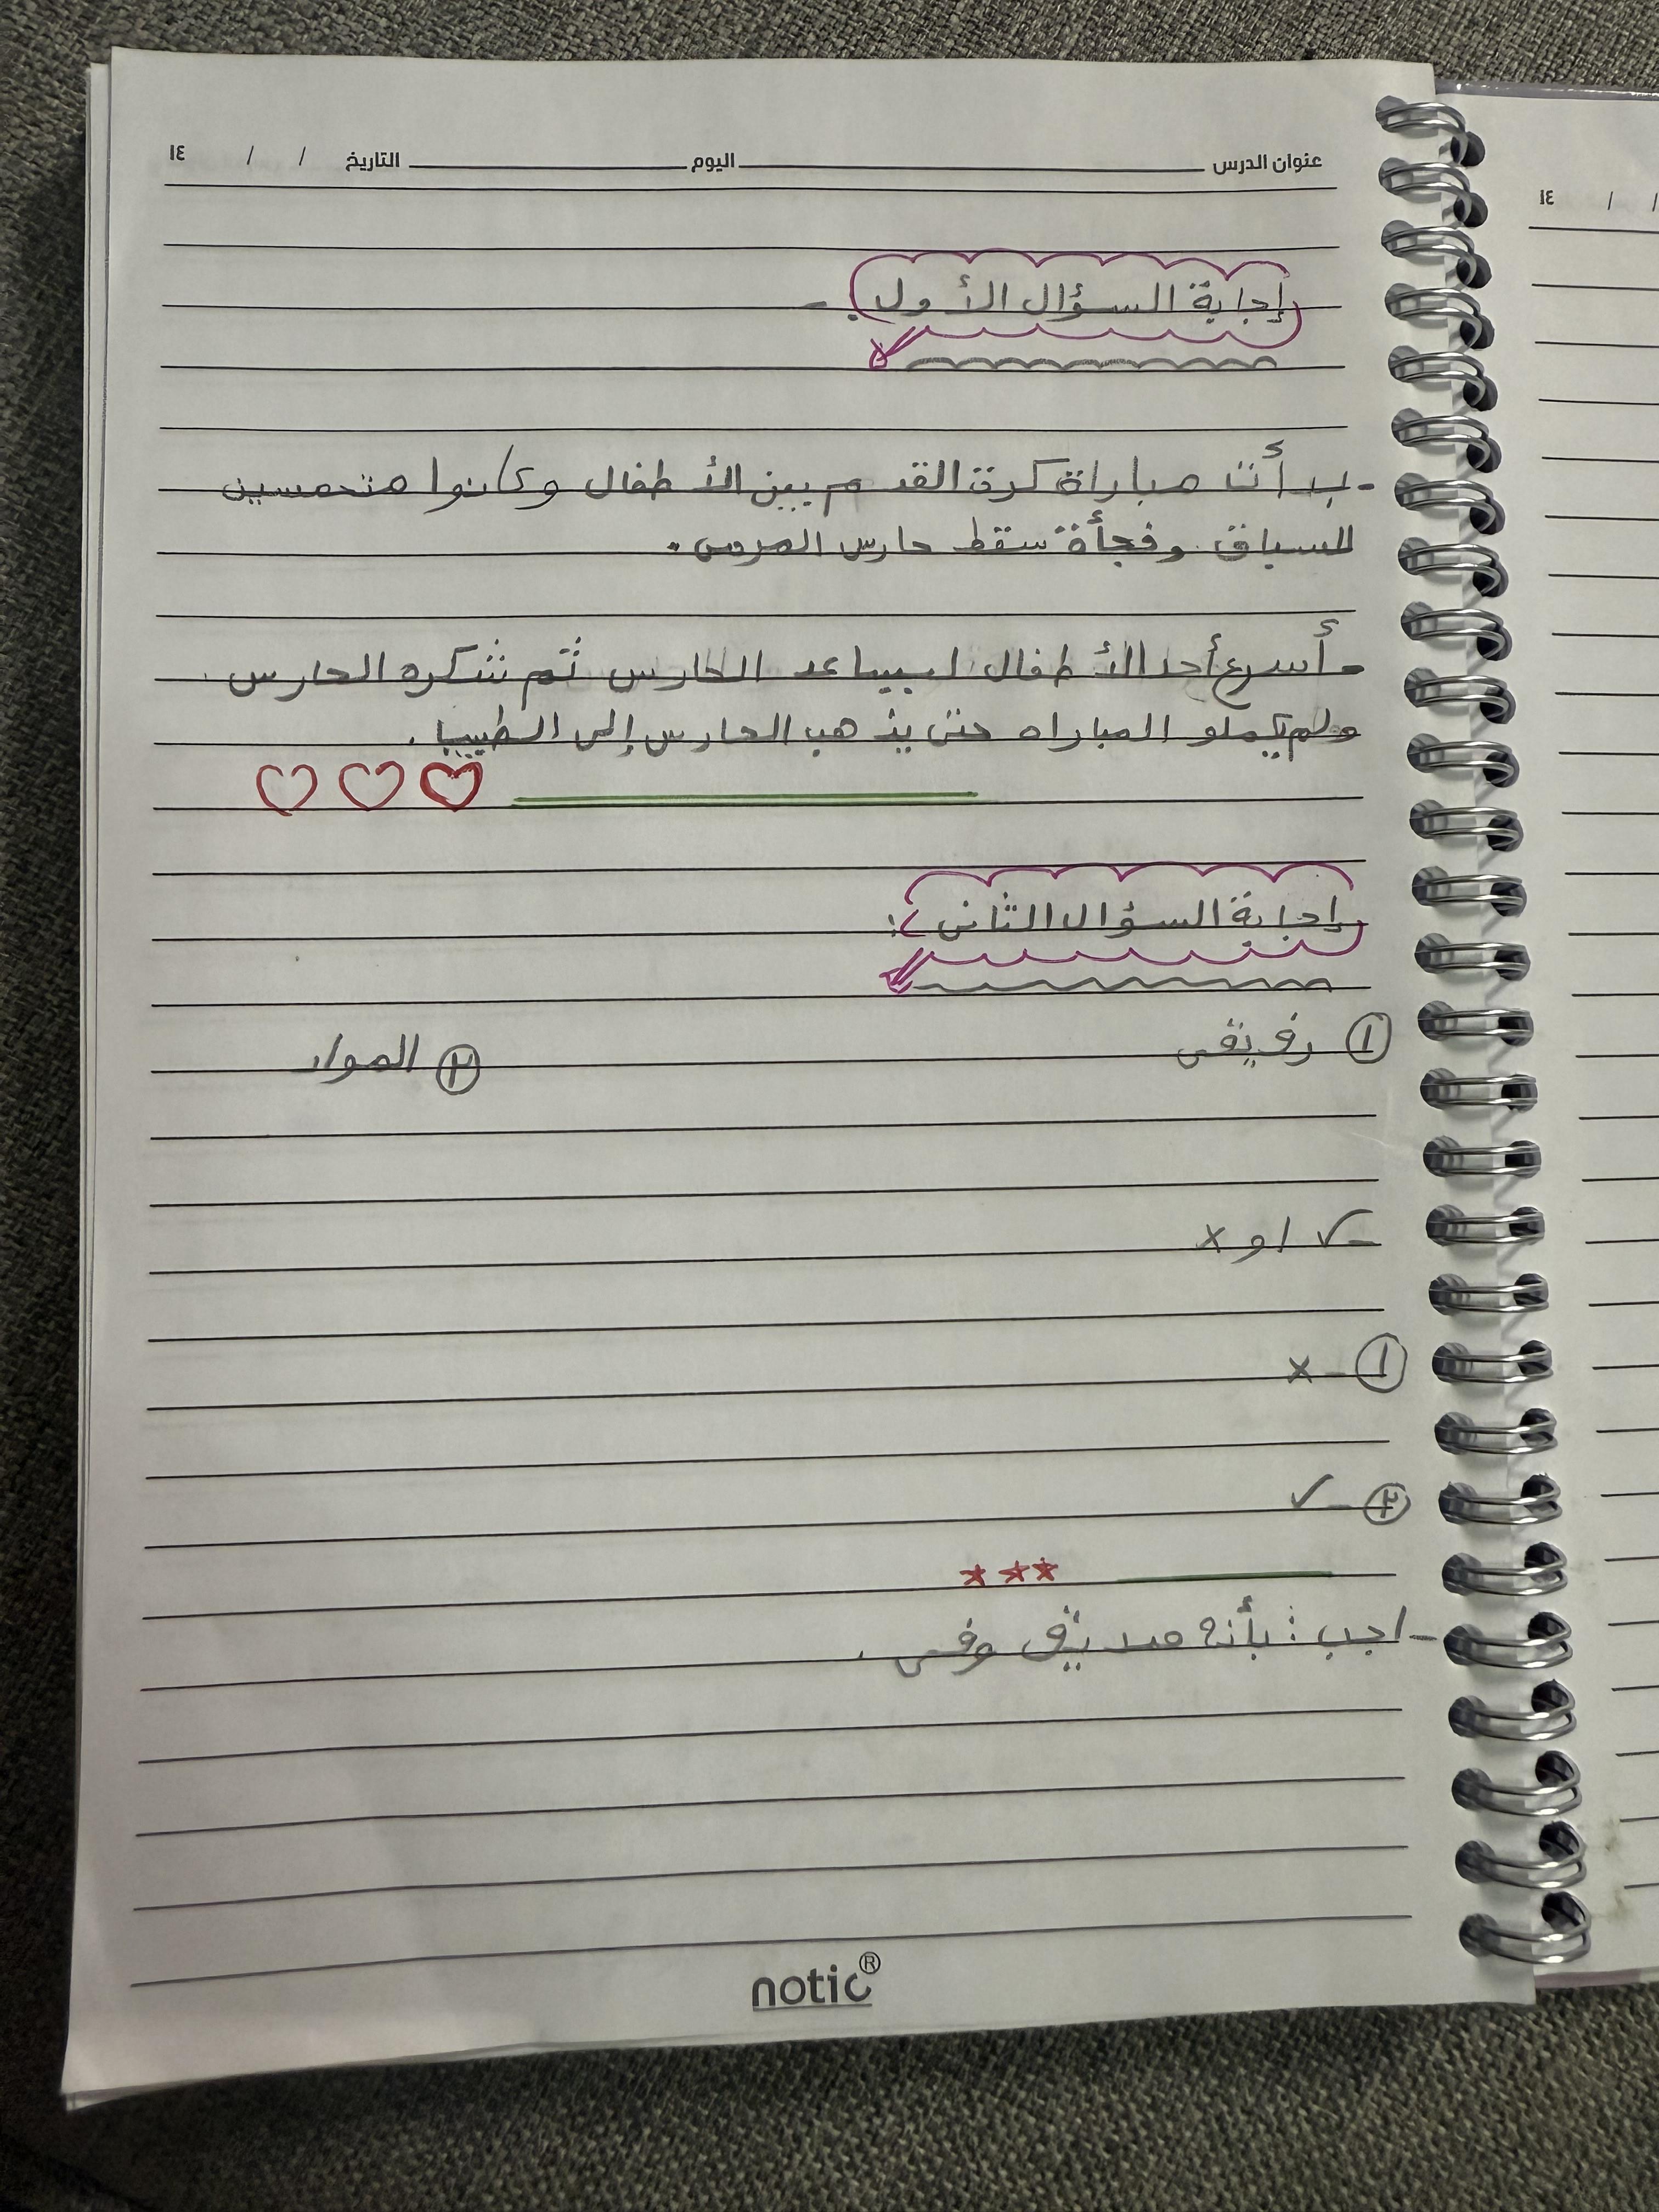 عنوان الدرس اليوم التاريخ / / ١٤
إجابة السؤال الأول:-
- بدأت مباراة كرة القدم بين الأطفال وكانوا متحمسين
للسباق وفجأة سقط حارس المرمى.
- أسرع أحد الأطفال ليساعد الحارس ثم شكره الحارس
ولم يكملو المباراه حتى يذهب الحارس إلى الطبيب.
إجابة السؤال الثاني:
١ رفيقي ٢ الحوار
- ✓ او ×
١ - ×
٢ - ✓
- اجب : بأنه صديق وفي.
notic®
١٤ / /